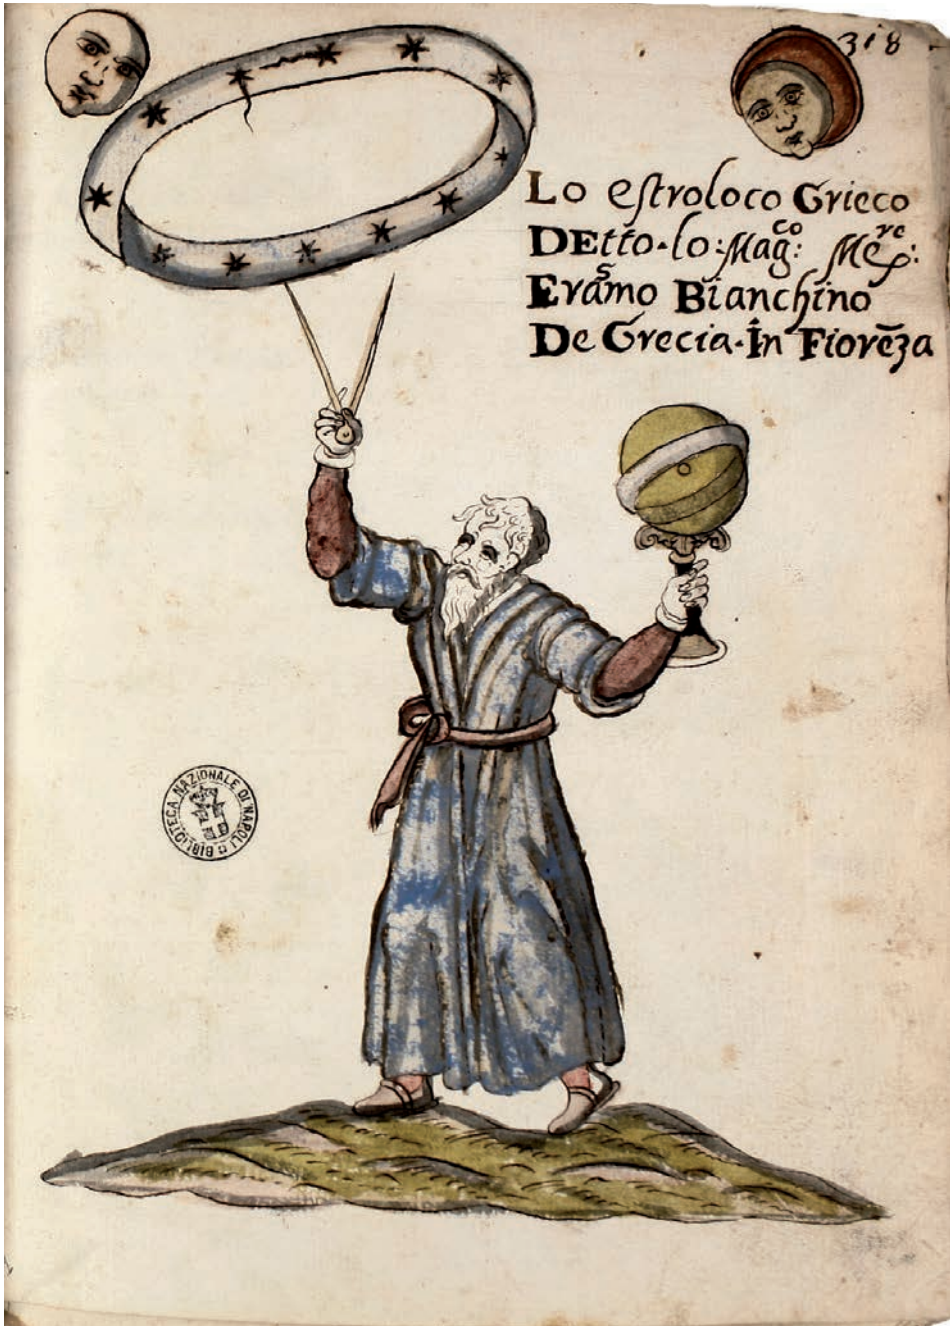 318
Lo estroloco Grieco
DEtto·lo:Mag:co Mex:re
Erasmo Bianchino
De Grecia·In Fiorēza
BIBLIOTECA NAZIONALE DI NAPOLI